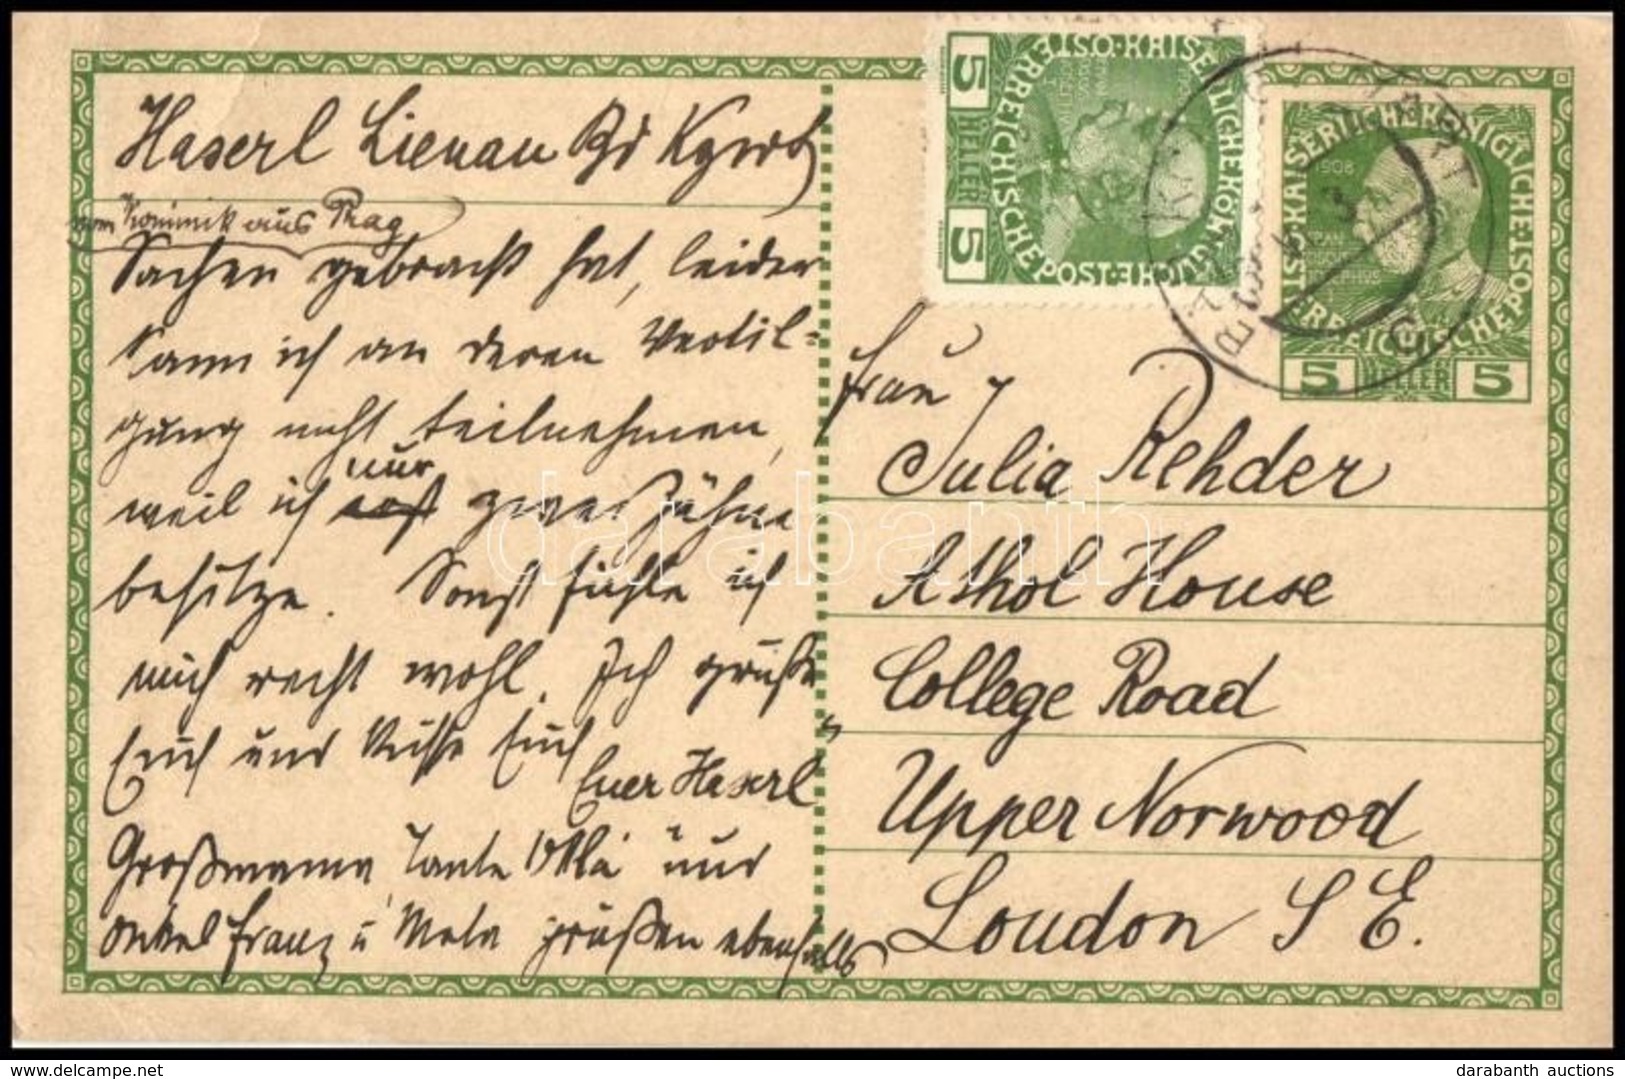 Haserl Lienau
vom Dominik aus Prag
Sachen gebracht hat, leider
kann ich an deren Vertil-
gung nicht teilnehmen,
weil ich nur zwei Zähne
besitze. Sonst fühle ich
mich recht wohl. Ich grüße
Euch und küsse Euch
Euer Haserl
Großmama, Tante und
Onkel Franz u Meta grüßen ebenfalls
5 HELLER 5
KAISERLICHE KÖNIGLICHE ÖSTERREICHISCHE POST
1908
KAISERLICHE KÖNIGLICHE ÖSTERREICHISCHE POST
5 HELLER 5
Frau
Julia Rehder
Athol House
College Road
Upper Norwood
London S E.
darabanth
www.delcampe.net
darabanth auctions